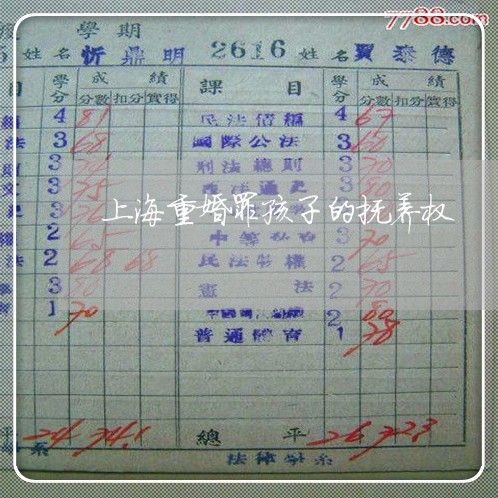 7788.com
度 學期
5 姓名 忻鼎明 2616 姓名 賈泰德
目 學分 成績 課目 學分 成績
分數 扣分 實得 分數 扣分 實得
4 81 民法債編 4 67
法 3 68 國際公法 3 60
則 3 刑法總則 3 70
文 3 75 3 80
史 3
上海重婚罪孩子的抚养权
權 2 65 3 70
法 2 68 68 民法物權 2 65
3 80 憲法 2 70
育 1 70 2 80
普通體育 1 78
平 24 74.1 總平 26 72.3
系 法律學系